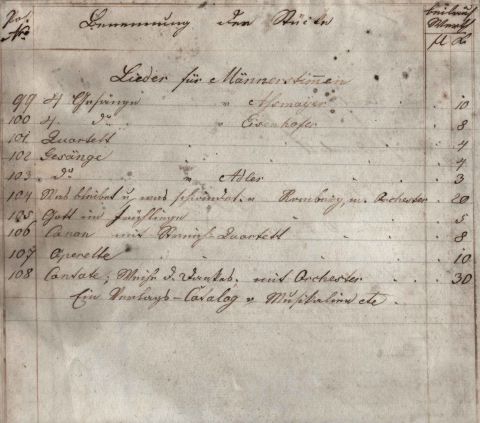 Post No. Benennung der Stücke beiläuf. Werth
fl x
Lieder für Männerstimmen
99 4 Gesänge v Assmayer 10
100 4. do v Eisenhofer 8
101 Quartett 4
102 Gesänge 4
103 do v Adler 3
104 Was bleibet u. was schwindet. v Romberg, m. Orchester 20
105 Gott im Frühlinge 5
106 Canon mit Streich-Quartett 8
107 Operette 10
108 Cantate; Weihe d. Dankes. mit Orchester 30
Ein Verlags-Catalog v Musikalien etc